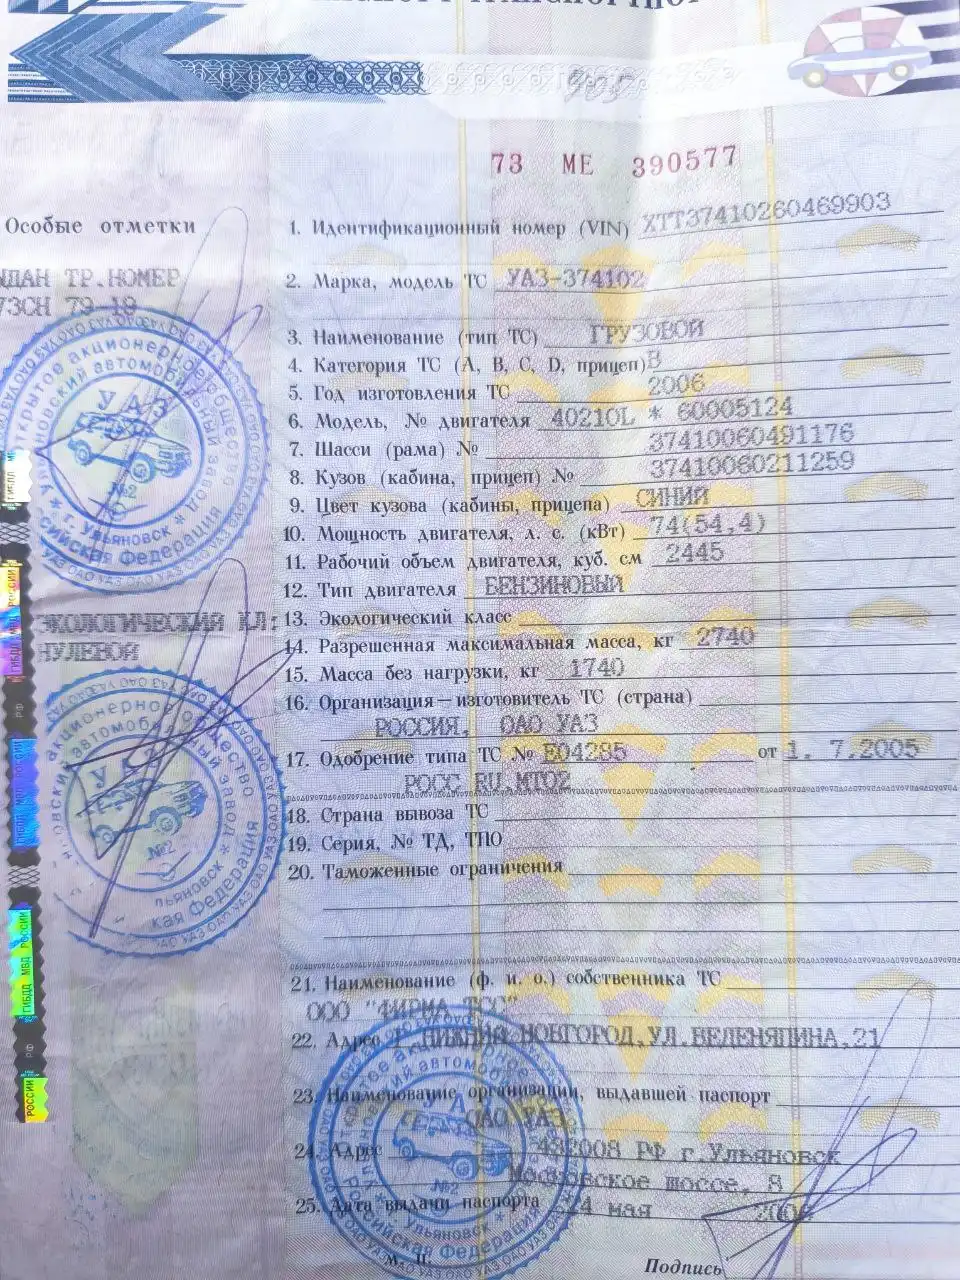 73 МЕ 390577
Особые отметки
ТР.НОМЕР
73СН 79-19
ЭКОЛОГИЧЕСКИЙ КЛ:
НУЛЕВОЙ
1. Идентификационный номер (VIN) XTT37410260469903
2. Марка, модель ТС УАЗ-374102
3. Наименование (тип ТС) ГРУЗОВОЙ
4. Категория ТС (А, В, С, D, прицеп) В
5. Год изготовления ТС 2006
6. Модель, № двигателя 40210L * 60005124
7. Шасси (рама) № 37410060491176
8. Кузов (кабина, прицеп) № 37410060211259
9. Цвет кузова (кабины, прицепа) СИНИЙ
10. Мощность двигателя, л. с. (кВт) 74(54,4)
11. Рабочий объем двигателя, куб. см 2445
12. Тип двигателя БЕНЗИНОВЫЙ
13. Экологический класс
14. Разрешенная максимальная масса, кг 2740
15. Масса без нагрузки, кг 1740
16. Организация—изготовитель ТС (страна)
РОССИЯ, ОАО УАЗ
17. Одобрение типа ТС № Е04285 от 1. 7.2005
РОСС RU.МТ02
18. Страна вывоза ТС
19. Серия, № ТД, ТПО
20. Таможенные ограничения
21. Наименование (ф. и. о.) собственника ТС
ООО "ФИРМА ТСС"
22. Адрес Г.НИЖНИЙ НОВГОРОД,УЛ.ВЕДЕНЯПИНА,21
23. Наименование организации, выдавшей паспорт
ОАО УАЗ
24. Адрес 432008 РФ г.Ульяновск
Московское шоссе, 8
25. Дата выдачи паспорта 24 мая 2006
М. П.
Подпись
УАЗ
№2
г. Ульяновск
Российская Федерация
ГИБДД МВД РОССИИ
РФ